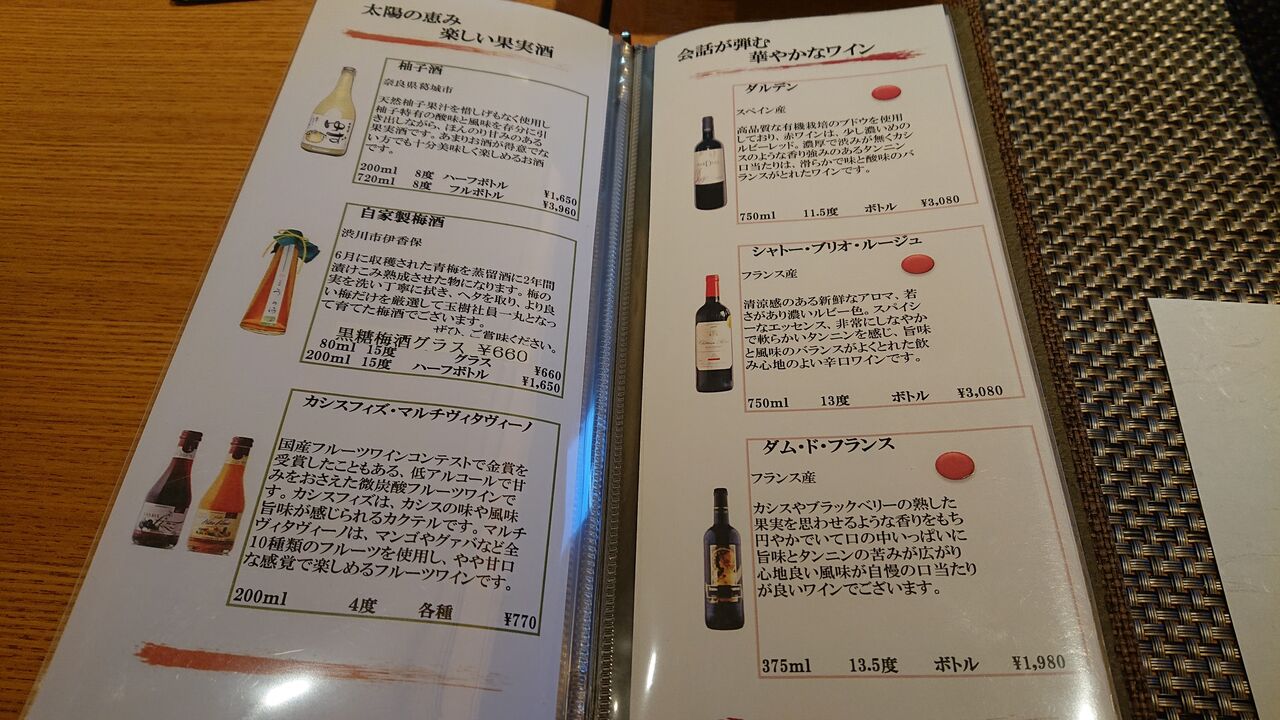 太陽の恵み
楽しい果実酒
柚子酒
奈良県葛城市
天然柚子果汁を惜しげもなく使用し
柚子特有の酸味と風味を存分に引
き出しながら、ほんのり甘みのある
果実酒です。あまりお酒が得意でな
い方でも十分美味しく楽しめるお酒
です。
200ml 8度 ハーフボトル ¥1,650
720ml 8度 フルボトル ¥3,960
自家製梅酒
渋川市伊香保
6月に収穫された青梅を蒸留酒に2年間
漬けこみ熟成させた物になります。梅の
実を洗い丁寧に拭き、ヘタを取り、より良
い梅だけを厳選して玉樹社員一丸となっ
て育てた梅酒でございます。
ぜひ、ご賞味ください。
黒糖梅酒グラス ¥660
80ml 15度 グラス ¥660
200ml 15度 ハーフボトル ¥1,650
カシスフィズ・マルチヴィタヴィーノ
国産フルーツワインコンテストで金賞を
受賞したこともある、低アルコールで甘
みをおさえた微炭酸フルーツワインで
す。カシスフィズは、カシスの味や風味
旨味が感じられるカクテルです。マルチ
ヴィタヴィーノは、マンゴやグアバなど全
10種類のフルーツを使用し、やや甘口
な感覚で楽しめるフルーツワインです。
200ml 4度 各種 ¥770
会話が弾む
華やかなワイン
ダルデン
スペイン産
高品質な有機栽培のブドウを使用
しており、赤ワインは、少し濃いめの
ルビーレッド。濃厚で渋みが無くカシ
スのような香り強みのあるタンニン
口当たりは、滑らかで味と酸味のバ
ランスがとれたワインです。
750ml 11.5度 ボトル ¥3,080
シャトー・ブリオ・ルージュ
フランス産
清涼感のある新鮮なアロマ、若
さがあり濃いルビー色。スパイシ
ーなエッセンス、非常にしなやか
で軟らかいタンニンを感じ、旨味
と風味のバランスがよくとれた飲
み心地のよい辛口ワインです。
750ml 13度 ボトル ¥3,080
ダム・ド・フランス
フランス産
カシスやブラックベリーの熟した
果実を思わせるような香りをもち
円やかでいて口の中いっぱいに
旨味とタンニンの苦みが広がり
心地良い風味が自慢の口当たり
が良いワインでございます。
375ml 13.5度 ボトル ¥1,980
ゆず